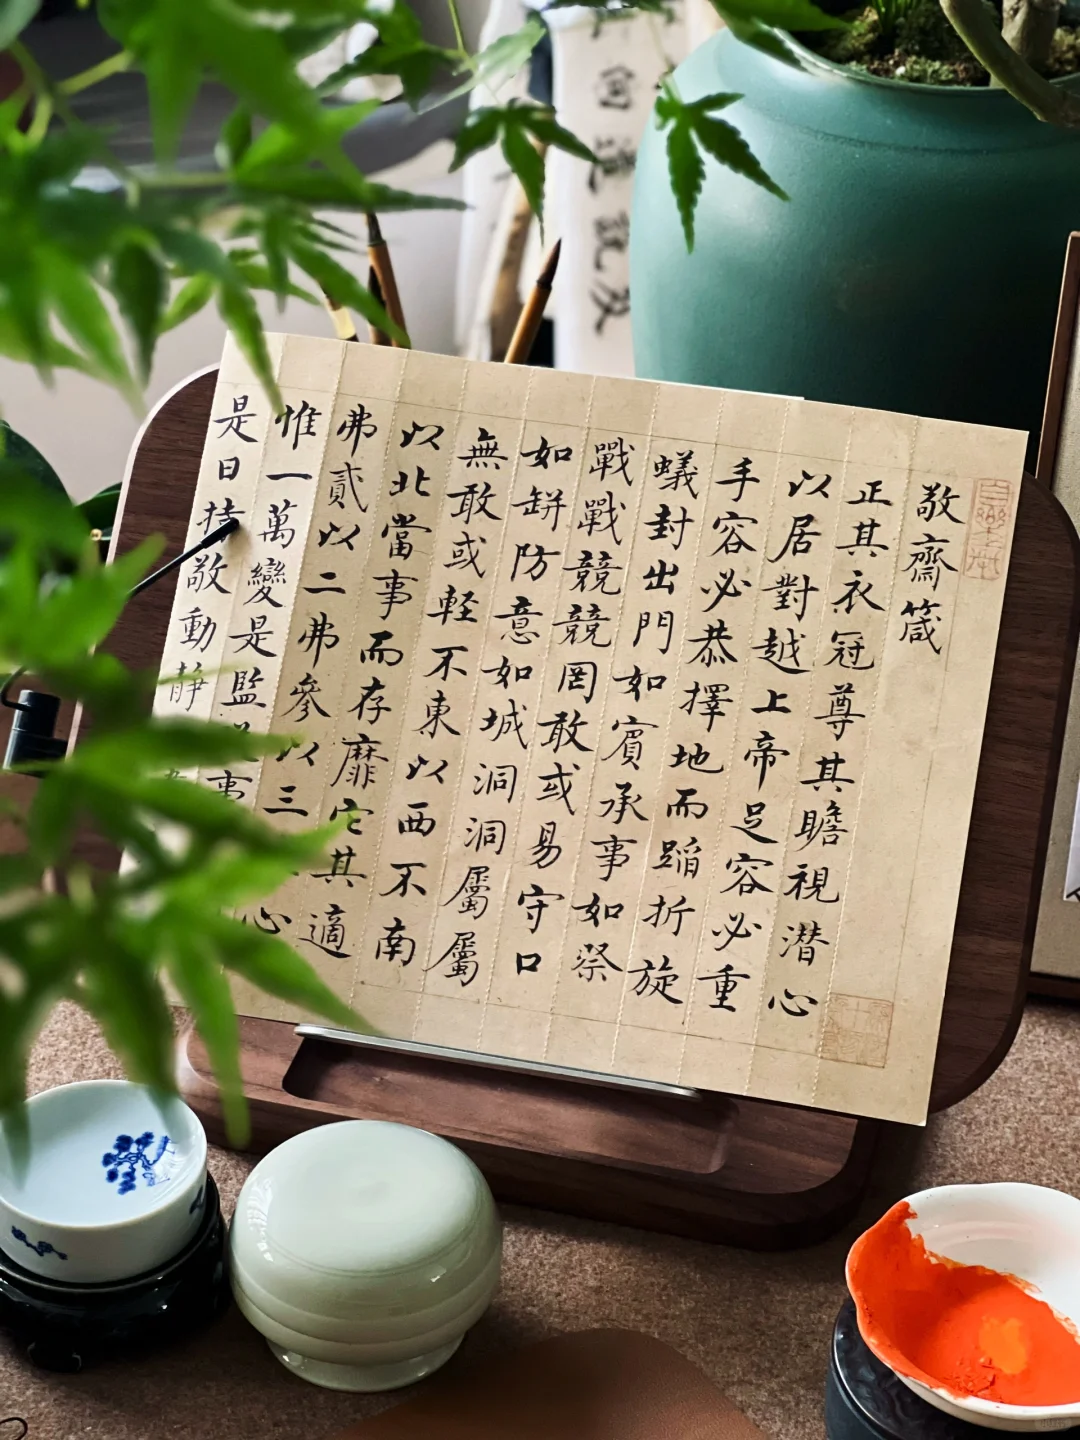 敬齋箴
正其衣冠尊其瞻視潜心
以居對越上帝足容必重
手容必恭擇地而蹈折旋
蟻封出門如賓承事如祭
戰戰競競罔敢或易守口
如缾防意如城洞洞屬屬
無敢或軽不東以西不南
以北當事而存靡它其適
弗貳以二弗參以三心
惟一萬變是監事
是曰持敬動静